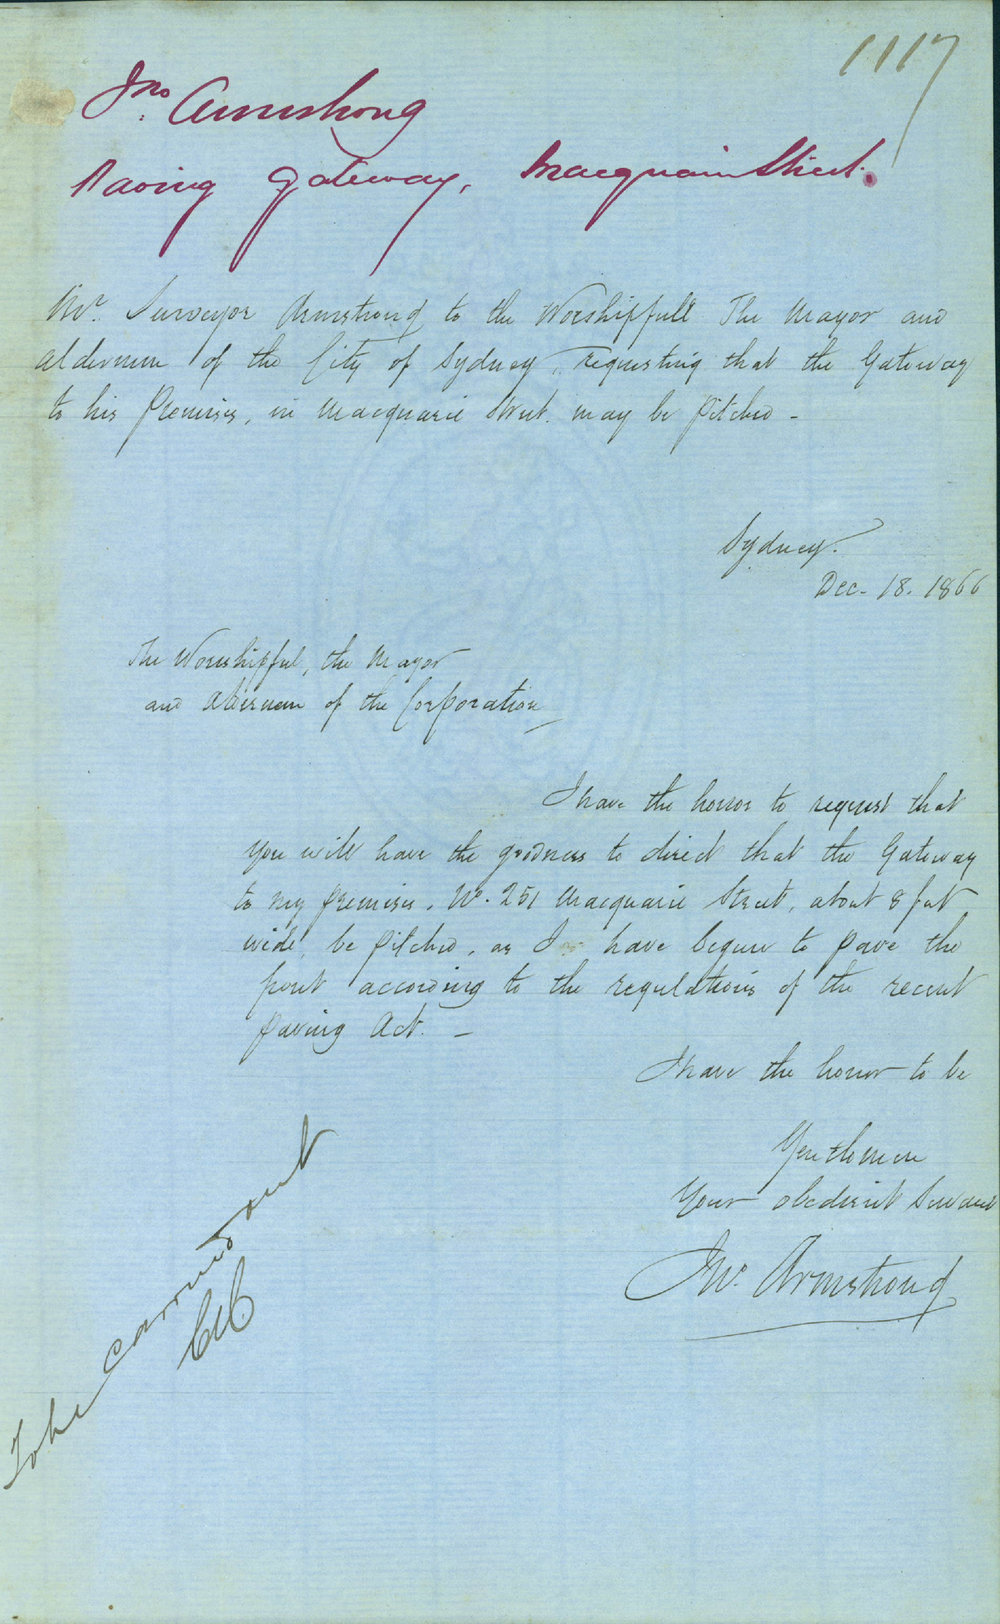 1117
Jno. Armstrong
Paving gateway, Macquarie Street.
Mr. Surveyor Armstrong to the Worshipfull The Mayor and
Aldermen of the City of Sydney, requesting that the Gateway
to his Premises, in Macquarie Street. may be Pitched -
Sydney.
Dec. 18. 1866
The Worshipful, the Mayor
and Aldermen of the Corporation
I have the honor to request that
you will have the goodness to direct that the Gateway
to my premises, No. 251 Macquarie Street, about 8 feet
wide, be pitched, as I have begun to pave the
front according to the regulations of the recent
Paving Act. -
I have the honor to be
Gentlemen
Your obedient Servant
Jno. Armstrong
To be carried out